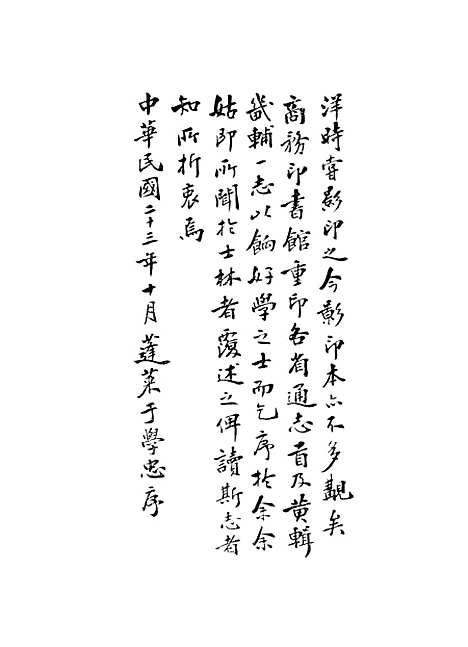 洋時嘗影印之今影印本亦不多覯矣
商務印書館重印各省通志首及黄輯
畿輔一志以餉好學之士而乞序於余余
姑即所聞於士林者覆述之俾讀斯志者
知所折衷焉
中華民國二十三年十月蓬萊于學忠序